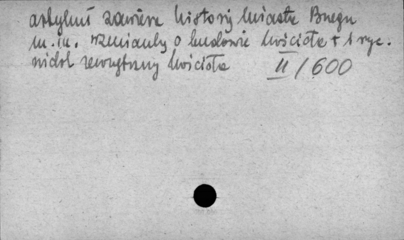 artykuł zawiera historię miasta Brzegu
m.in. wzmianki o budowie kościoła + 1 ryc.
widok zewnętrzny kościoła II/600